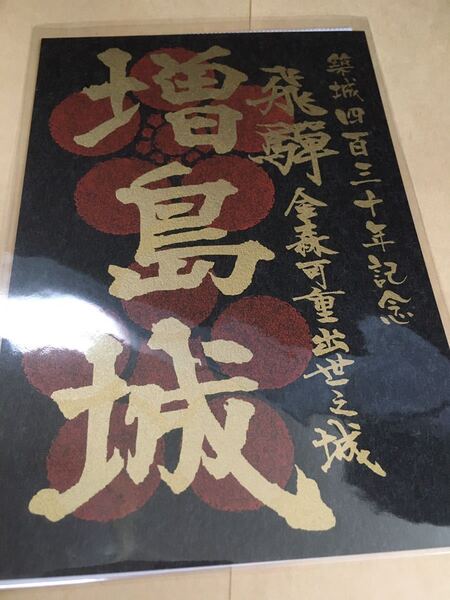 築城四百三十年記念
飛騨 金森可重出世之城
増島城